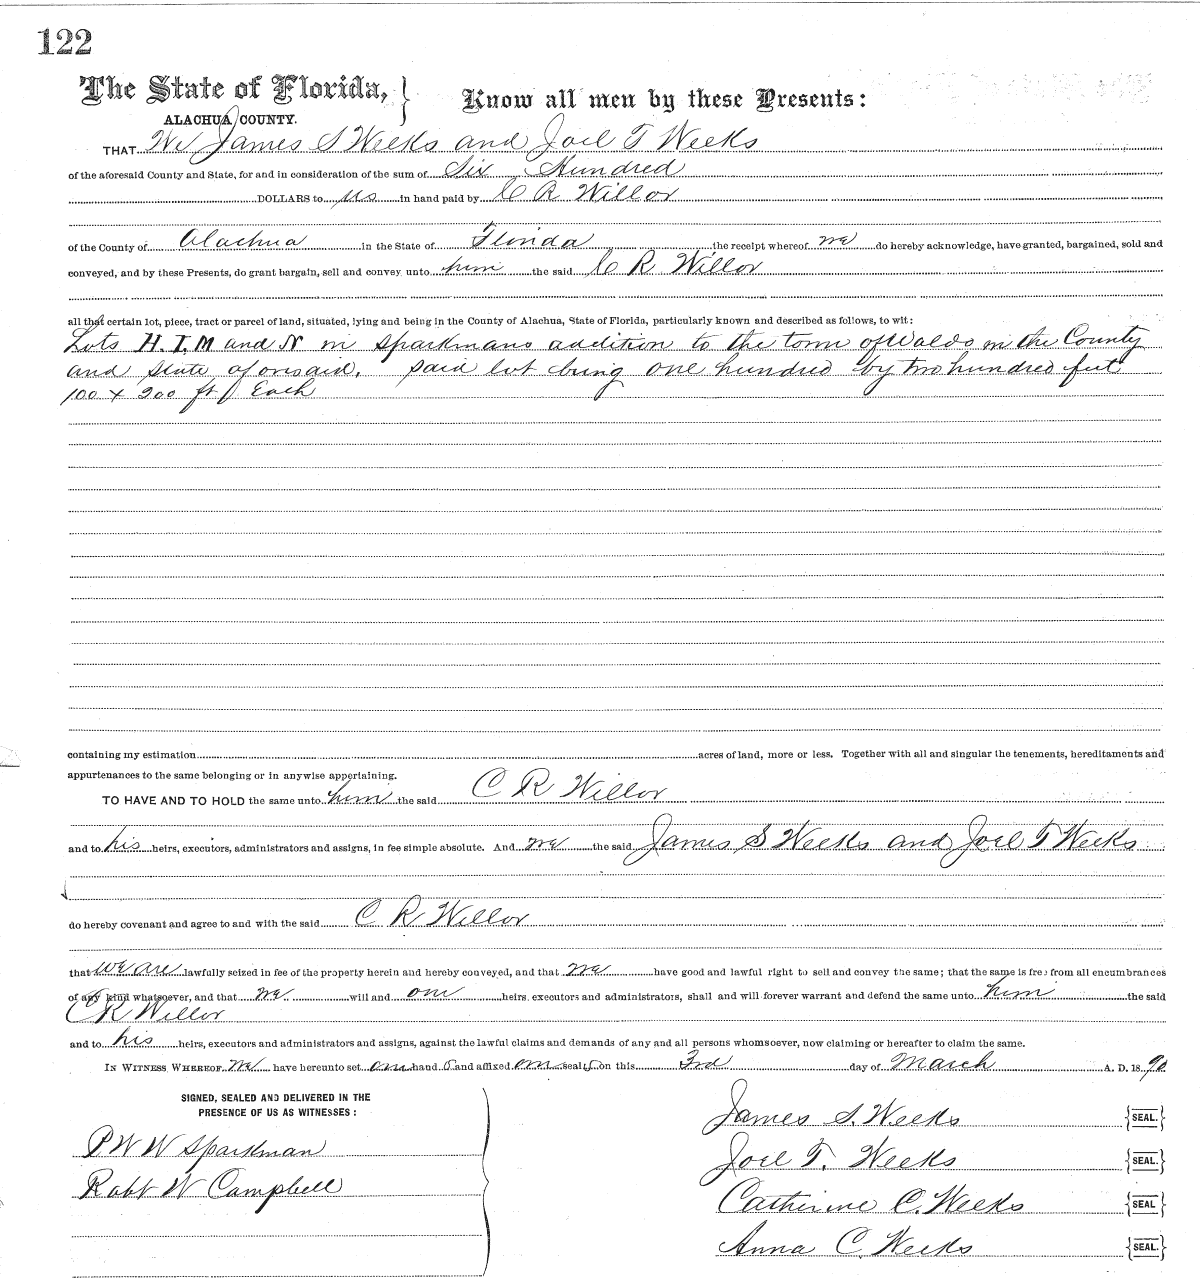 122
The State of Florida, } Know all men by these Presents:
ALACHUA COUNTY.
THAT We James S Weeks and Joel T Weeks
of the aforesaid County and State, for and in consideration of the sum of Six Hundred
DOLLARS to us in hand paid by C R Willor
of the County of Alachua in the State of Florida the receipt whereof we do hereby acknowledge, have granted, bargained, sold and
conveyed, and by these Presents, do grant bargain, sell and convey unto him the said C R Willor
all that certain lot, piece, tract or parcel of land, situated, lying and being in the County of Alachua, State of Florida, particularly known and described as follows, to wit:
Lots H. I, M and N in Sparkmans addition to the town of Waldo in the County
and State aforesaid. Said lot being one hundred by two hundred feet
100 x 200 ft Each
containing my estimation acres of land, more or less. Together with all and singular the tenements, hereditaments and
appurtenances to the same belonging or in anywise appertaining.
TO HAVE AND TO HOLD the same unto him the said C R Willor
and to his heirs, executors, administrators and assigns, in fee simple absolute. And we the said James S Weeks and Joel T Weeks
do hereby covenant and agree to and with the said C R Willor
that we are lawfully seized in fee of the property herein and hereby conveyed, and that we have good and lawful right to sell and convey the same; that the same is free from all encumbrances
of any kind whatsoever, and that we will and our heirs, executors and administrators, shall and will forever warrant and defend the same unto him the said
C R Willor
and to his heirs, executors and administrators and assigns, against the lawful claims and demands of any and all persons whomsoever, now claiming or hereafter to claim the same.
IN WITNESS WHEREOF we have hereunto set our hand s and affixed our seal s on this 3rd day of March A. D. 18 90
SIGNED, SEALED AND DELIVERED IN THE
PRESENCE OF US AS WITNESSES:
P W W Sparkman
Robt W Campbell
James S. Weeks {SEAL.}
Joel T. Weeks {SEAL.}
Catherine C. Weeks {SEAL}
Anna C Weeks {SEAL.}